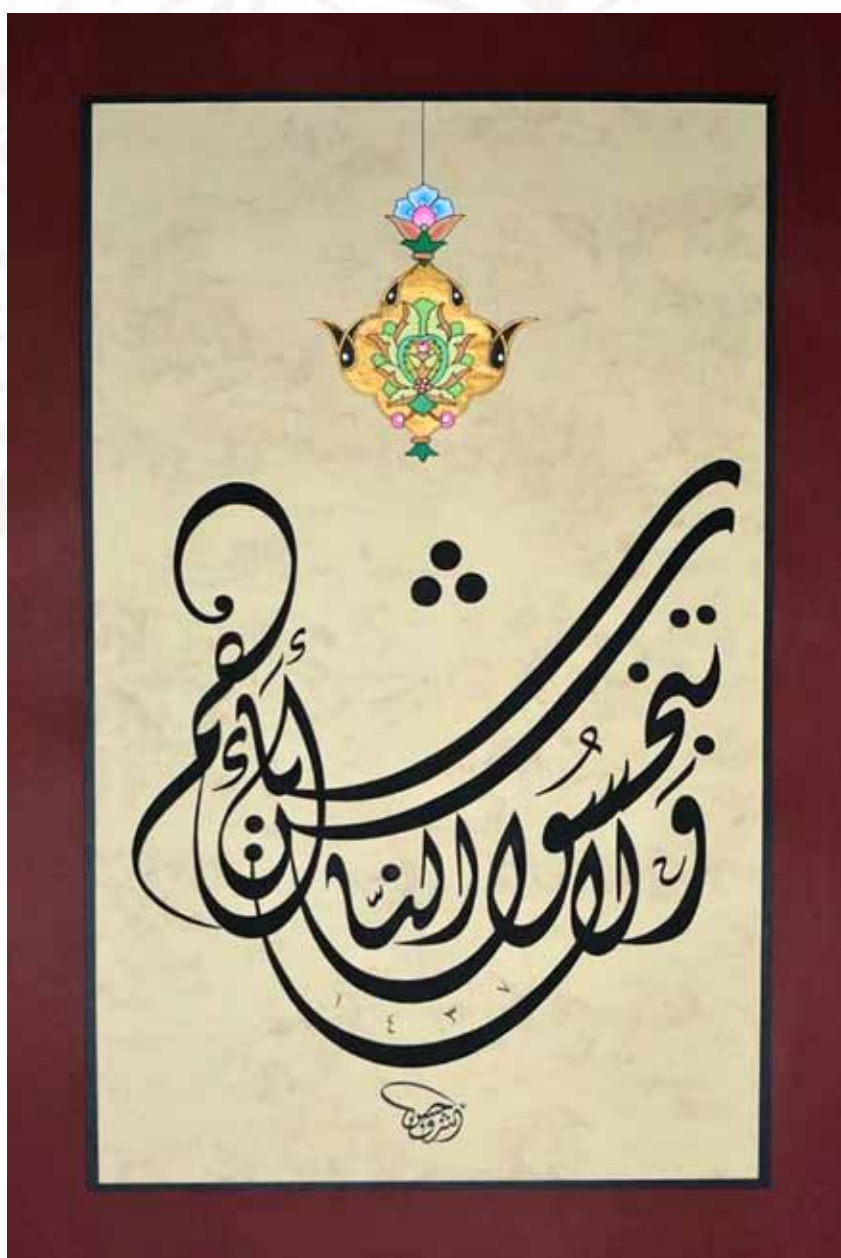 وَلَا تبخسوُا الناَّس أَشيَاءَهم
١٤٣٧